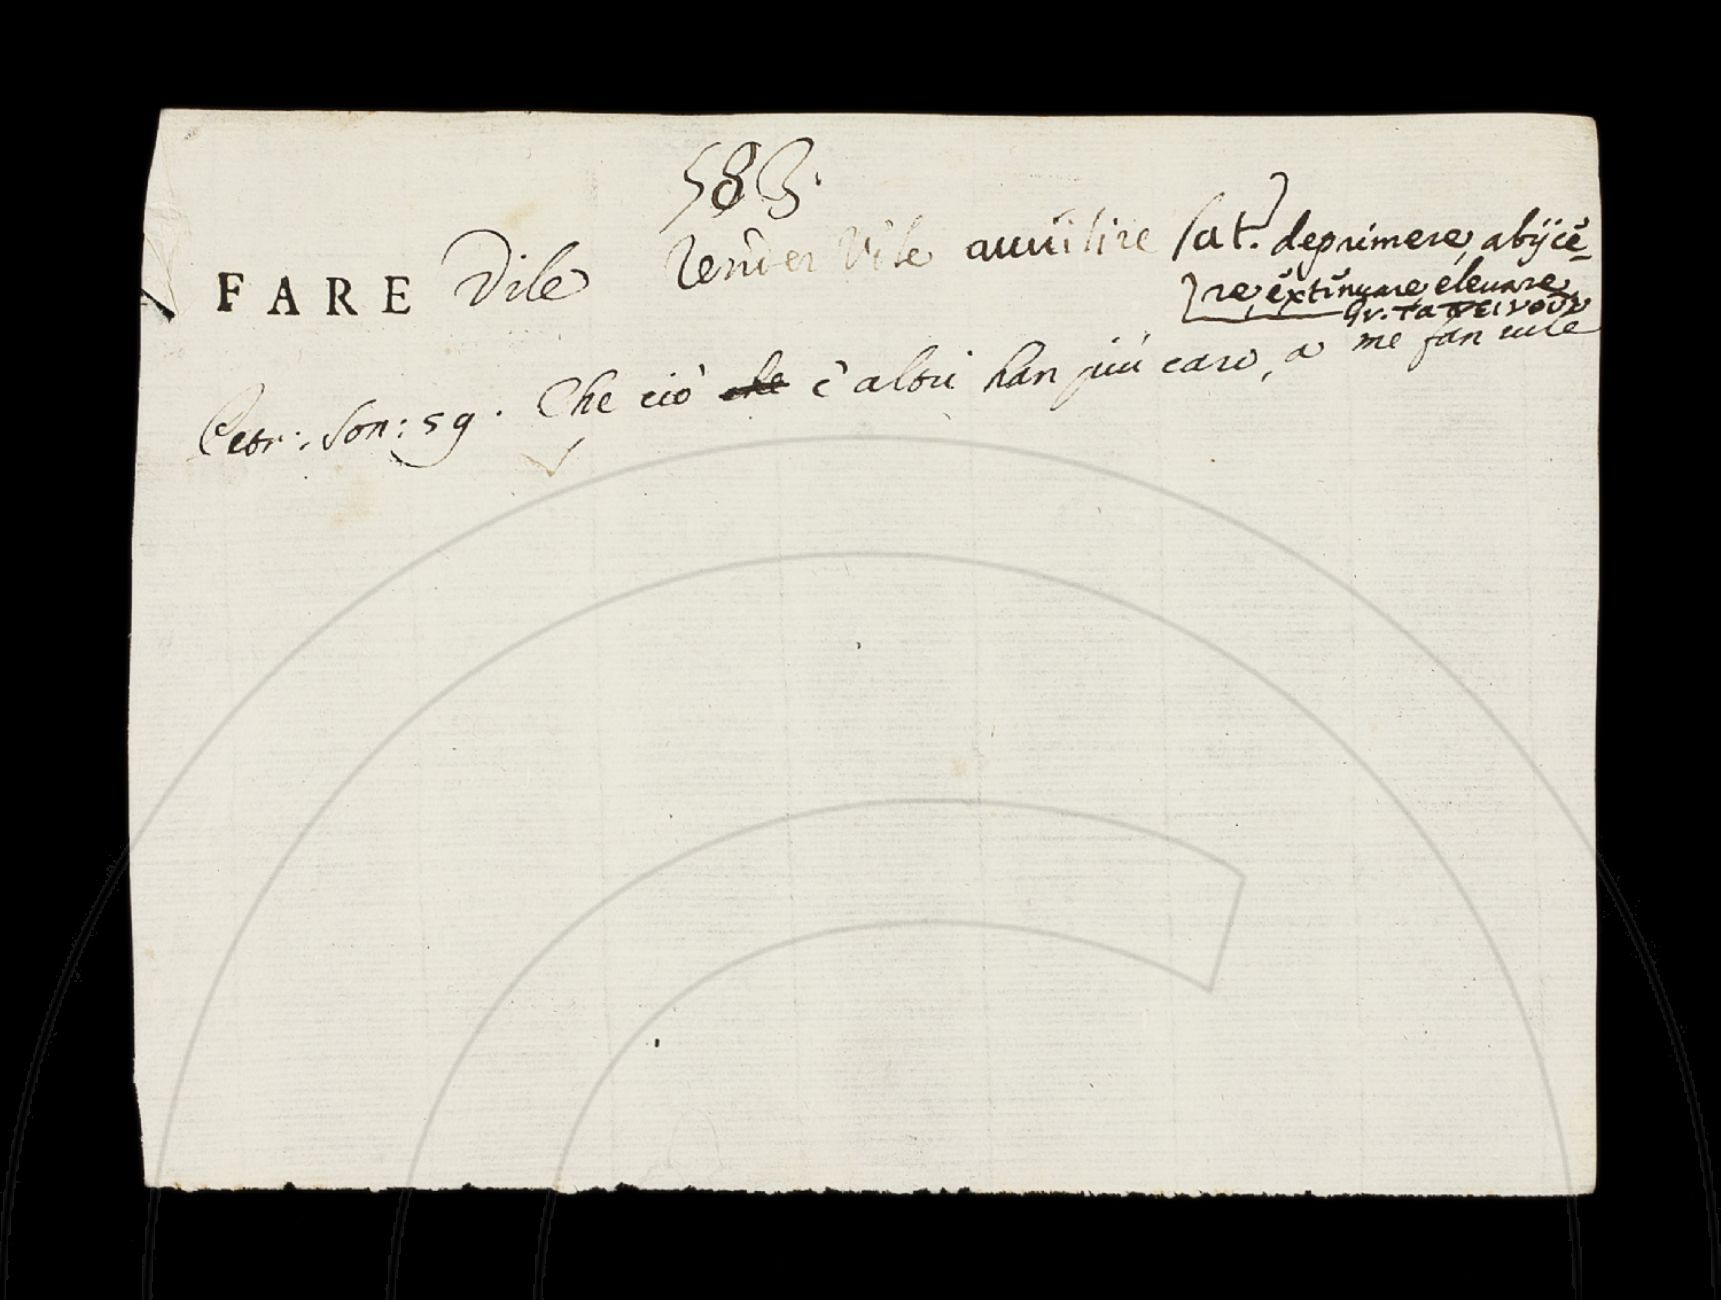 583.
FARE Vile Render Vile auuilire lat. deprimere, abijcē-
re extenuare eleuare
Gr. ταπεινοῦν
Petr: Son: 59. Che ciò che c'altri han più caro, a me fan uile